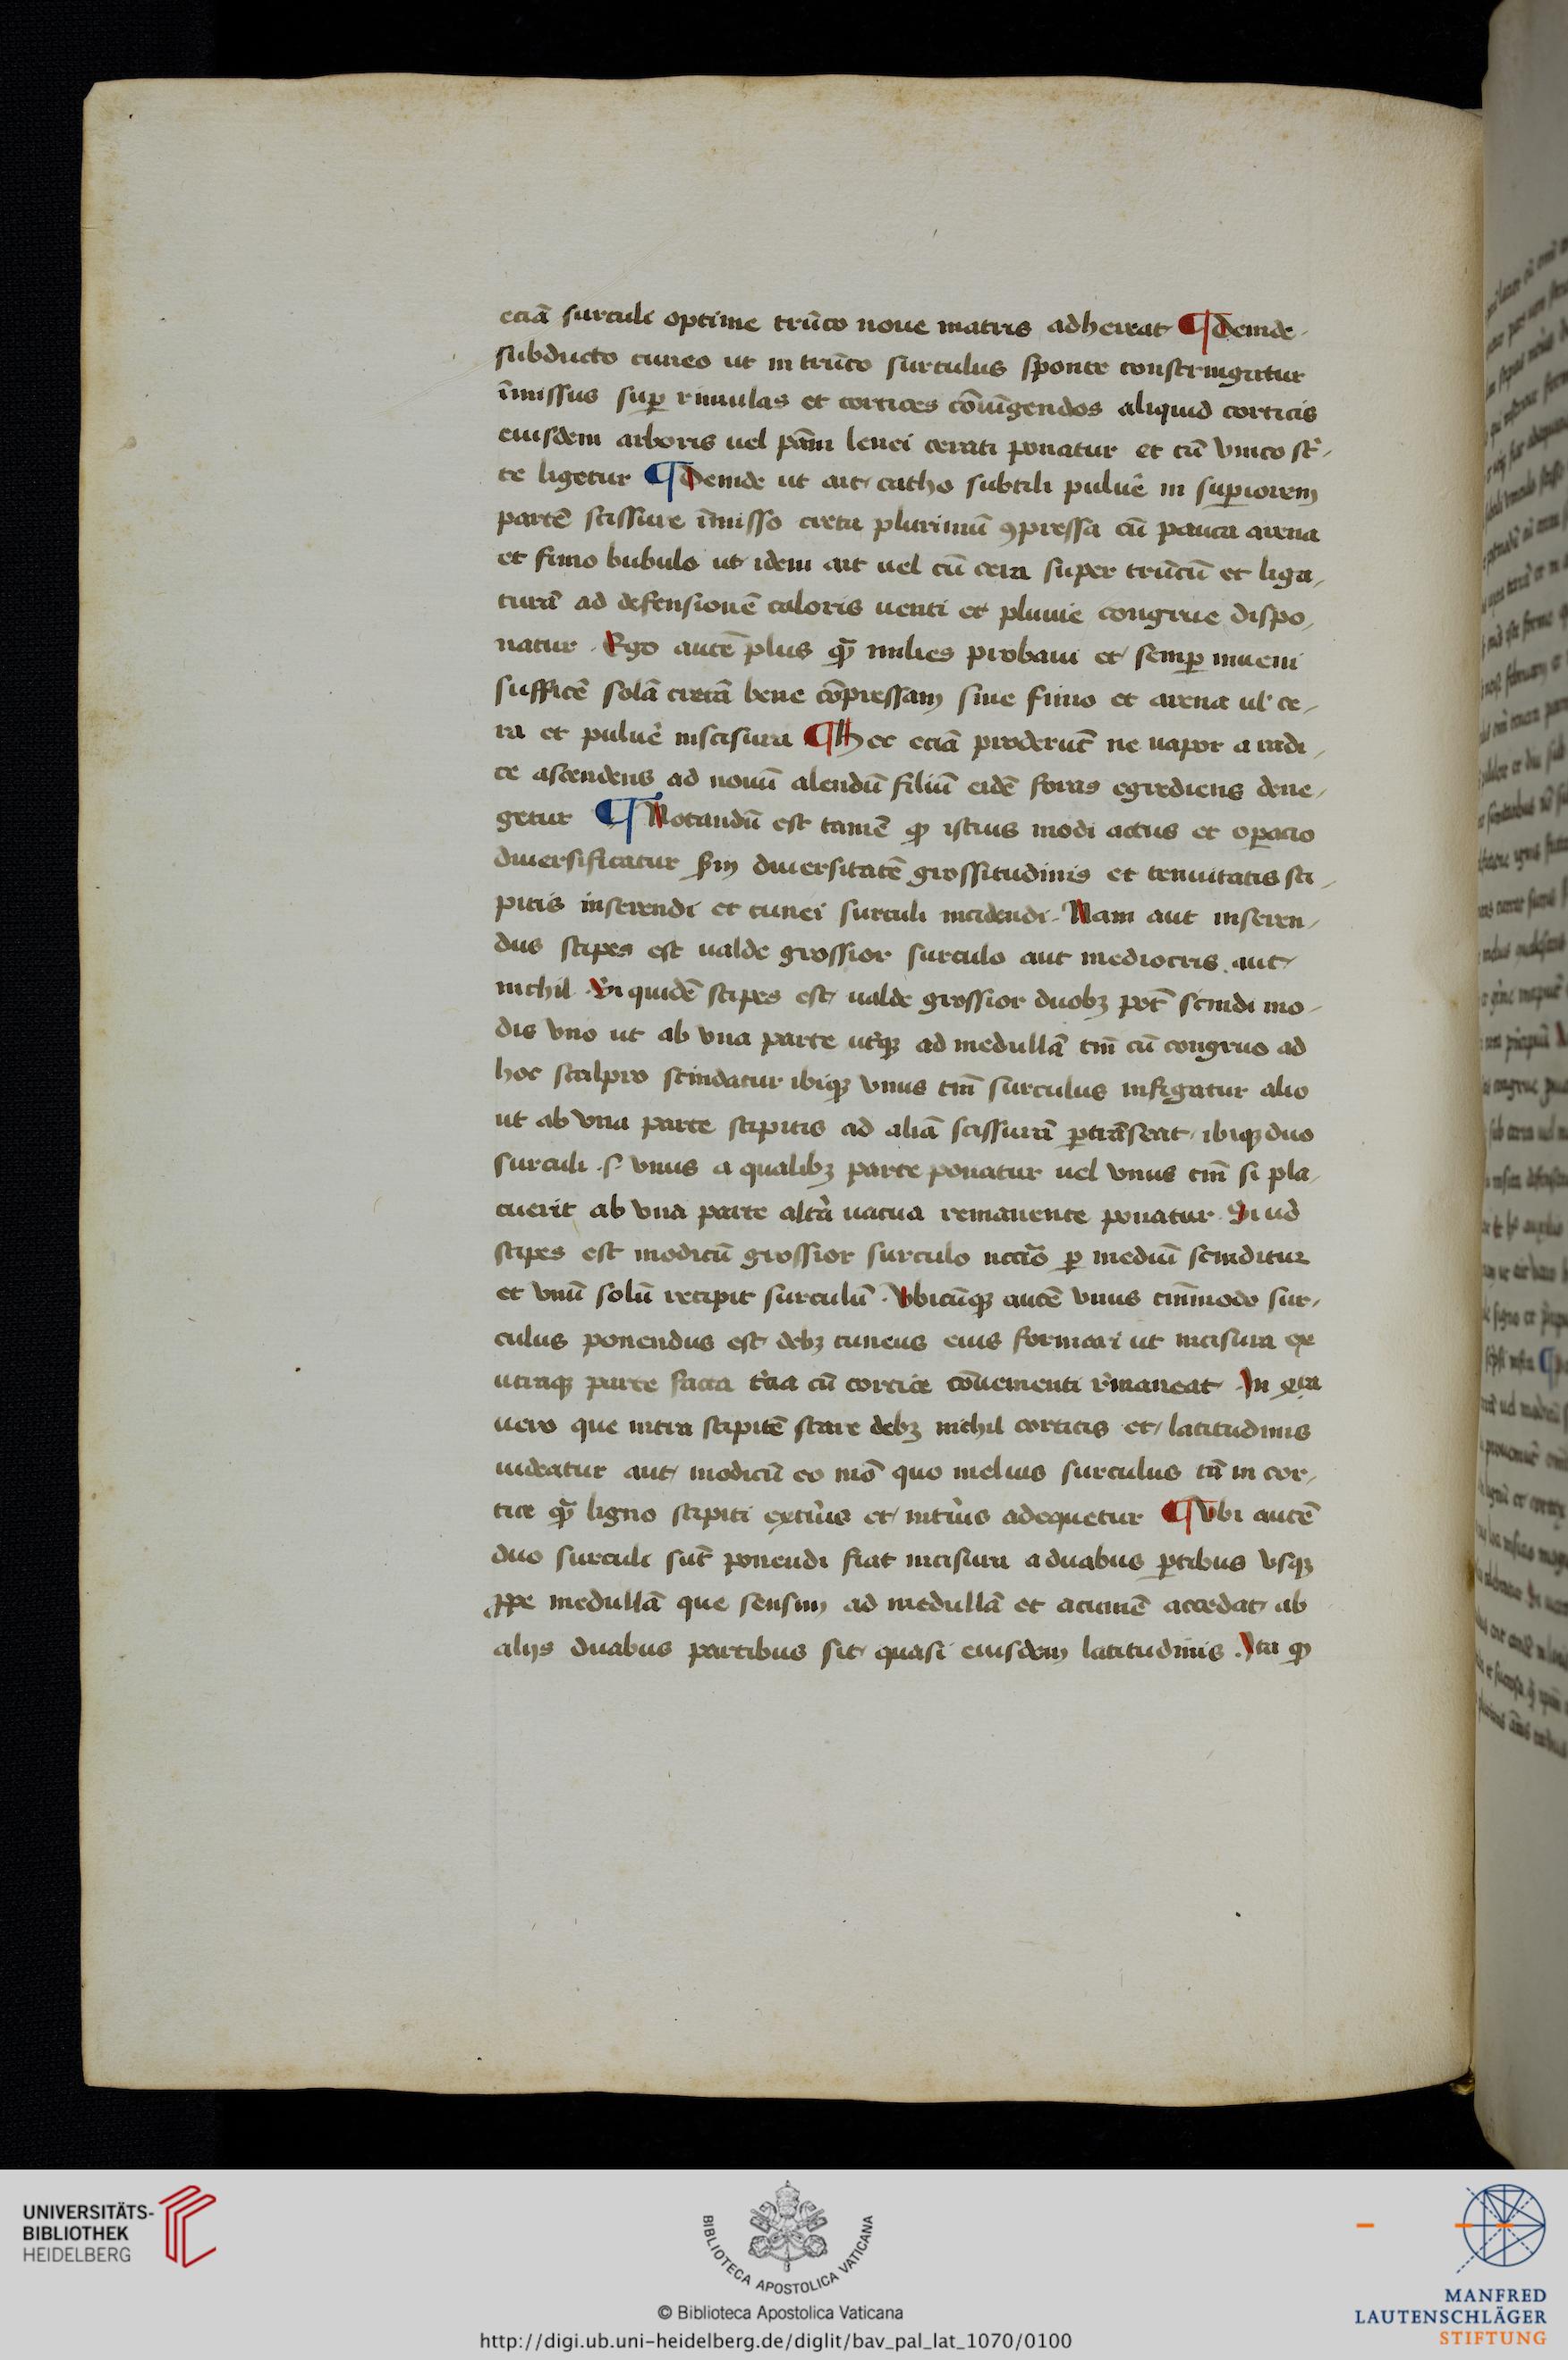 eciā surculi optime trūco noue matris adhereat ¶ Deinde
subducto cuneo ut in trūco surculus sponte constringatur
īmissus sup rimulas et cortices cōiūgendos aliquid corticis
eiusdem arboris uel pāni lenei cerati ponatur et cū vinco
te ligetur ¶ Deinde ut ait catho subtili puluē in supiorem
partē scissure īmisso creta plurimū ꝯpressa cū pauca arena
et fimo bubulo ut idem ait uel cū cera super trūcū et liga-
turā ad defensionē caloris uenti et pluuie congrue dispo-
natur . Ego autē plus qᷓ milies probaui et semp inueni
sufficē solā cretā bene cōpressam sine fimo et arena ul' ce-
ra et puluē inscisura ¶ Hec eciā proderūt ne uapor a radi-
ce ascendens ad nouū alendū filiū eidē foras egrediens dene-
getur ¶ Notandū est tamē ꝙ istius modi actus et opacio
diuersificatur scdm diuersitatē grossitudinis et tenuitatis sti-
pitis inserendi et cunei surculi incidendi . Nam aut inseren-
dus stipes est ualde grossior surculo aut mediocris . aut
nichil . Si quidē stipes est ualde grossior duobꝫ pōt scindi mo-
dis vno ut ab vna parte utiqꝫ ad medullā tm̄ cū congruo ad
hoc scalpro scindatur ibiqꝫ vnus tm̄ surculus infigatur alio
ut ab vna parte stipitis ad aliā scissurā ꝑtrāseat ibiqꝫ duo
surculi .s. vnus a qualibꝫ parte ponatur uel vnus tm̄ si pla-
cuerit ab vna parte altā uacua remanente ponatur . Si ūo
stipes est modicū grossior surculo nccio ꝑ mediū scinditur
et vnū solū recipit surculū . Vbicūqꝫ autē vnus tm̄modo sur-
culus ponendus est debꝫ cuneus eius formari ut incisura ex
utraqꝫ parte facta t'cia cū cortice cōuenienti r̄maneat . In qua
uero que intra stipitē stare debꝫ nichil corticis et latitudinis
uideatur aut modicū eo mō quo melius surculus tā in cor-
tice qᷓ ligno stipiti exti'us et inti'us adequetur ¶ Vbi autē
duo surculi sūt ponendi fiat incisura a duabus ꝑtibus vsqꝫ
ꝓpe medullā que sensim ad medullā et acumē accedat ab
alijs duabus partibus sit quasi eiusdem latitudinis . Ita ꝙ
UNIVERSITÄTS-
BIBLIOTHEK
HEIDELBERG
BIBLIOTECA APOSTOLICA VATICANA
© Biblioteca Apostolica Vaticana
http://digi.ub.uni-heidelberg.de/diglit/bav_pal_lat_1070/0100
MANFRED
LAUTENSCHLÄGER
STIFTUNG